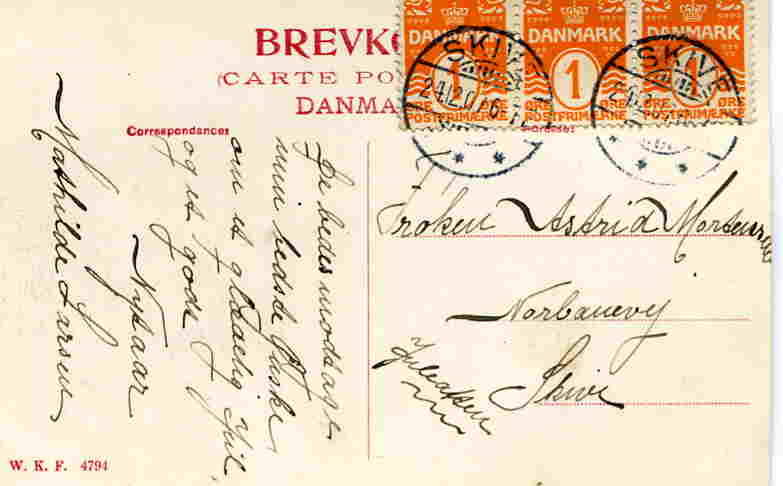 BREVKO
(CARTE PO
DANMA
DANMARK DANMARK DANMARK
1 1 1
ØRE ØRE ØRE ØRE ØRE
POSTFRIMÆRKE POSTFRIMÆRKE POSTFRIMÆRKE
SKIVE
24.12.07
SKIVE
Correspondance:
De bedes modtage
min bedste Ønske
om et glædelig Jul
og et godt
Nytaar
Mathilde Larsen
Frøken Astrid Mortensen
Norbanevej
Skive
Juleaften
W. K. F. 4794